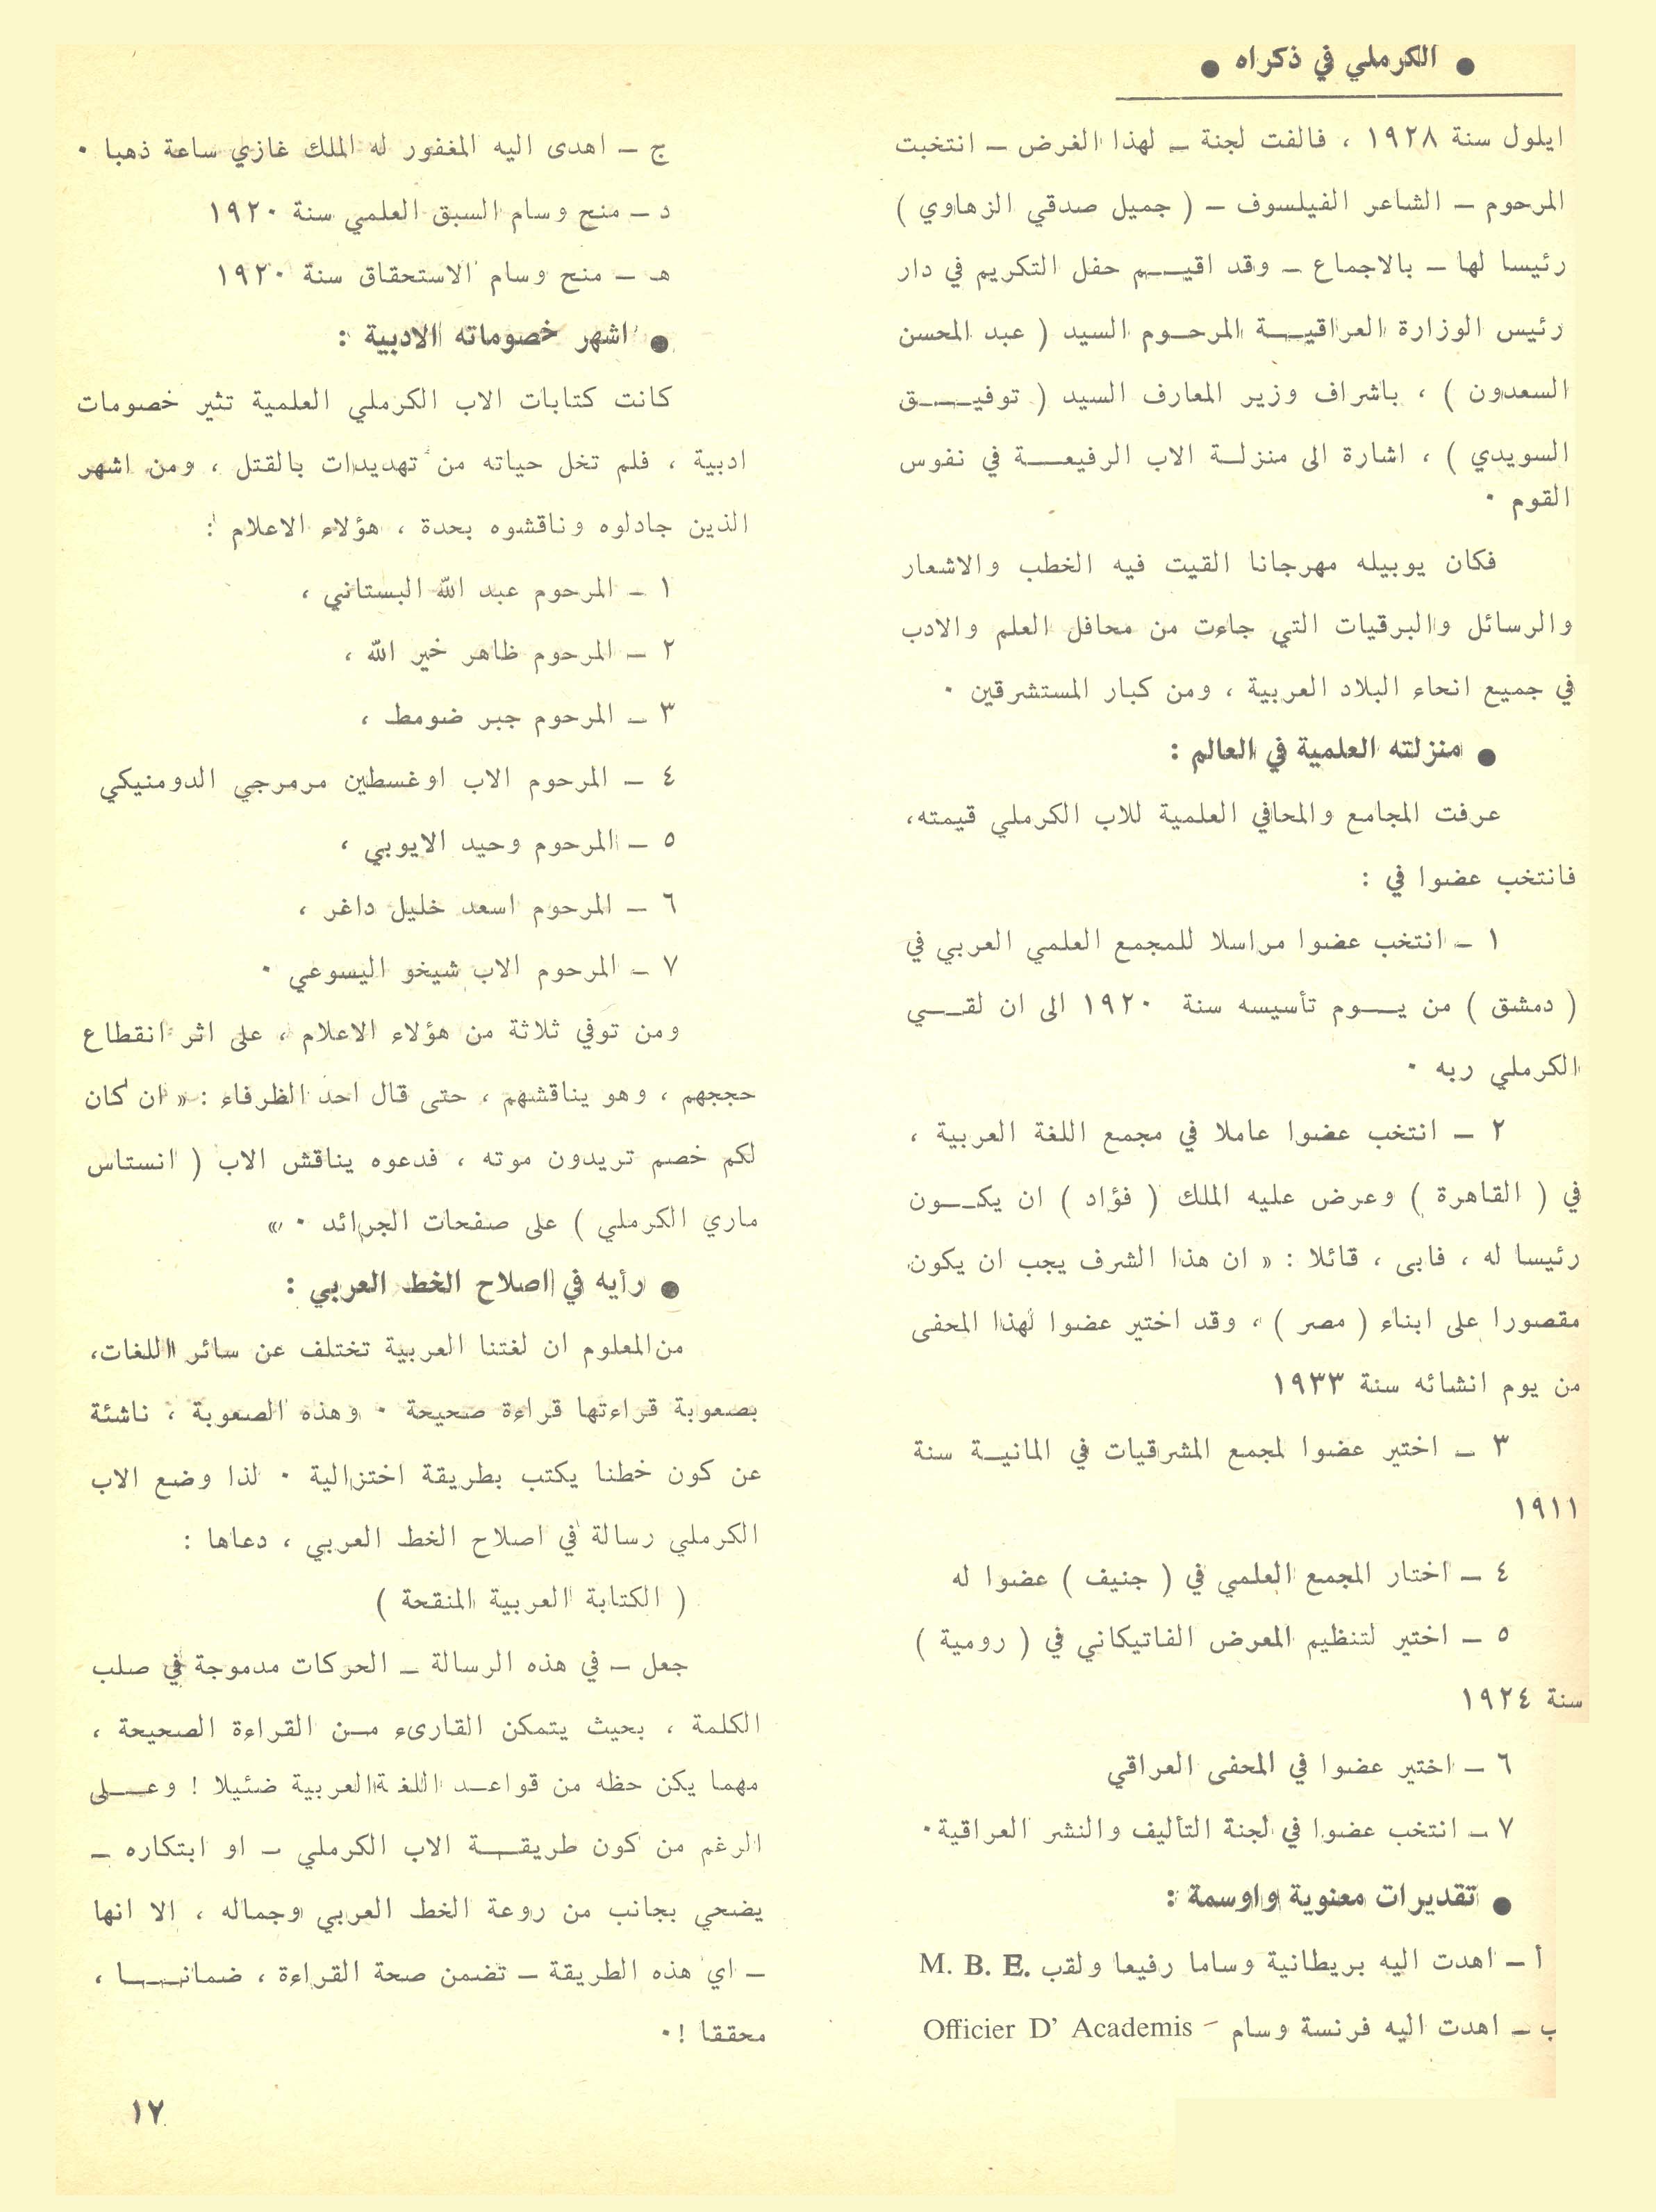 ● الكرملي في ذكراه ●
ايلول سنة ١٩٢٨ ، فالفت لجنة ــ لهذا الغرض ــ انتخبت
المرحوم ــ الشاعر الفيلسوف ــ ( جميل صدقي الزهاوي )
رئيسا لها ــ بالاجماع ــ وقد اقيـــم حفل التكريم في دار
رئيس الوزارة العراقيـــة المرحـوم السيد ( عبد المحسن
السعدون ) ، باشراف وزير المعارف السيد ( توفيـــق
السويدي ) ، اشارة الى منزلـة الاب الرفيعـــة في نفوس
القوم ٠
فكان يوبيله مهرجانا القيت فيه الخطب والاشعار
والرسائل والبرقيات التي جاءت من محافل العلم والادب
في جميع انحاء البلاد العربية ، ومن كبار المستشرقين ٠
● منزلته العلمية في العالم :
عرفت المجامع والمحافي العلمية للاب الكرملي قيمته،
فانتخب عضوا في :
١ ــ انتخب عضوا مراسلا للمجمع العلمي العربي في
( دمشق ) من يـــوم تأسيسه سنة ١٩٢٠ الى ان لقـــي
الكرملي ربه ٠
٢ ــ انتخب عضوا عاملا في مجمع اللغة العربية ،
في ( القاهرة ) وعرض عليه الملك ( فؤاد ) ان يكـــون
رئيسا له ، فابى ، قائلا : « ان هذا الشرف يجب ان يكون
مقصورا على ابناء ( مصر ) ، وقد اختير عضوا لهذا المحفى
من يوم انشائه سنة ١٩٣٣
٣ ــ اختير عضوا لمجمع المشرقيات في المانيـة سنة
١٩١١
٤ ــ اختار المجمع العلمي في ( جنيف ) عضوا له
٥ ــ اختير لتنظيم المعرض الفاتيكاني في ( رومية )
سنة ١٩٢٤
٦ ــ اختير عضوا في المحفى العراقي
٧ ــ انتخب عضوا في لجنة التأليف والنشر العراقية٠
● تقديرات معنوية واوسمة :
أ ــ اهدت اليه بريطانية وساما رفيعا ولقب M. B. E.
ب ــ اهدت اليه فرنسة وسام – Officier D' Academis
ج ــ اهدى اليه المغفور له الملك غازي ساعة ذهبا ٠
د ــ منح وسام السبق العلمي سنة ١٩٢٠
هـ ــ منح وسام الاستحقاق سنة ١٩٢٠
● اشهر خصوماته الادبية :
كانت كتابات الاب الكرملي العلمية تثير خصومات
ادبية ، فلم تخل حياته من تهديدات بالقتل ، ومن اشهر
الذين جادلوه وناقشوه بحدة ، هؤلاء الاعلام :
١ ــ المرحوم عبد الله البستاني ،
٢ ــ المرحوم ظاهر خير الله ،
٣ ــ المرحوم جبر ضومط ،
٤ ــ المرحوم الاب اوغسطين مرمرجي الدومنيكي
٥ ــ المرحوم وحيد الايوبي ،
٦ ــ المرحوم اسعد خليل داغر ،
٧ ــ المرحوم الاب شيخو اليسوعي ٠
ومن توفي ثلاثة من هؤلاء الاعلام ، على اثر انقطاع
حججهم ، وهو يناقشهم ، حتى قال احد الظرفاء : « ان كان
لكم خصم تريدون موته ، فدعوه يناقش الاب ( انستاس
ماري الكرملي ) على صفحات الجرائد ٠ »
● رأيه في اصلاح الخط العربي :
من المعلوم ان لغتنا العربية تختلف عن سائر اللغات،
بصعوبة قراءتها قراءة صحيحة ٠ وهذه الصعوبة ، ناشئة
عن كون خطنا يكتب بطريقة اختزالية ٠ لذا وضع الاب
الكرملي رسالة في اصلاح الخط العربي ، دعاها :
( الكتابة العربية المنقحة )
جعل ــ في هذه الرسالة ــ الحركات مدموجة في صلب
الكلمة ، بحيث يتمكن القارىء مـن القراءة الصحيحة ،
مهما يكن حظه من قواعـد اللغة العربية ضئيلا ! وعـــلى
الرغم من كون طريقـــة الاب الكرملي ــ او ابتكاره ــ
يضحي بجانب من روعة الخط العربي وجماله ، الا انها
ــ اي هذه الطريقة ــ تضمن صحة القراءة ، ضمانـــا ،
محققا !٠
١٧